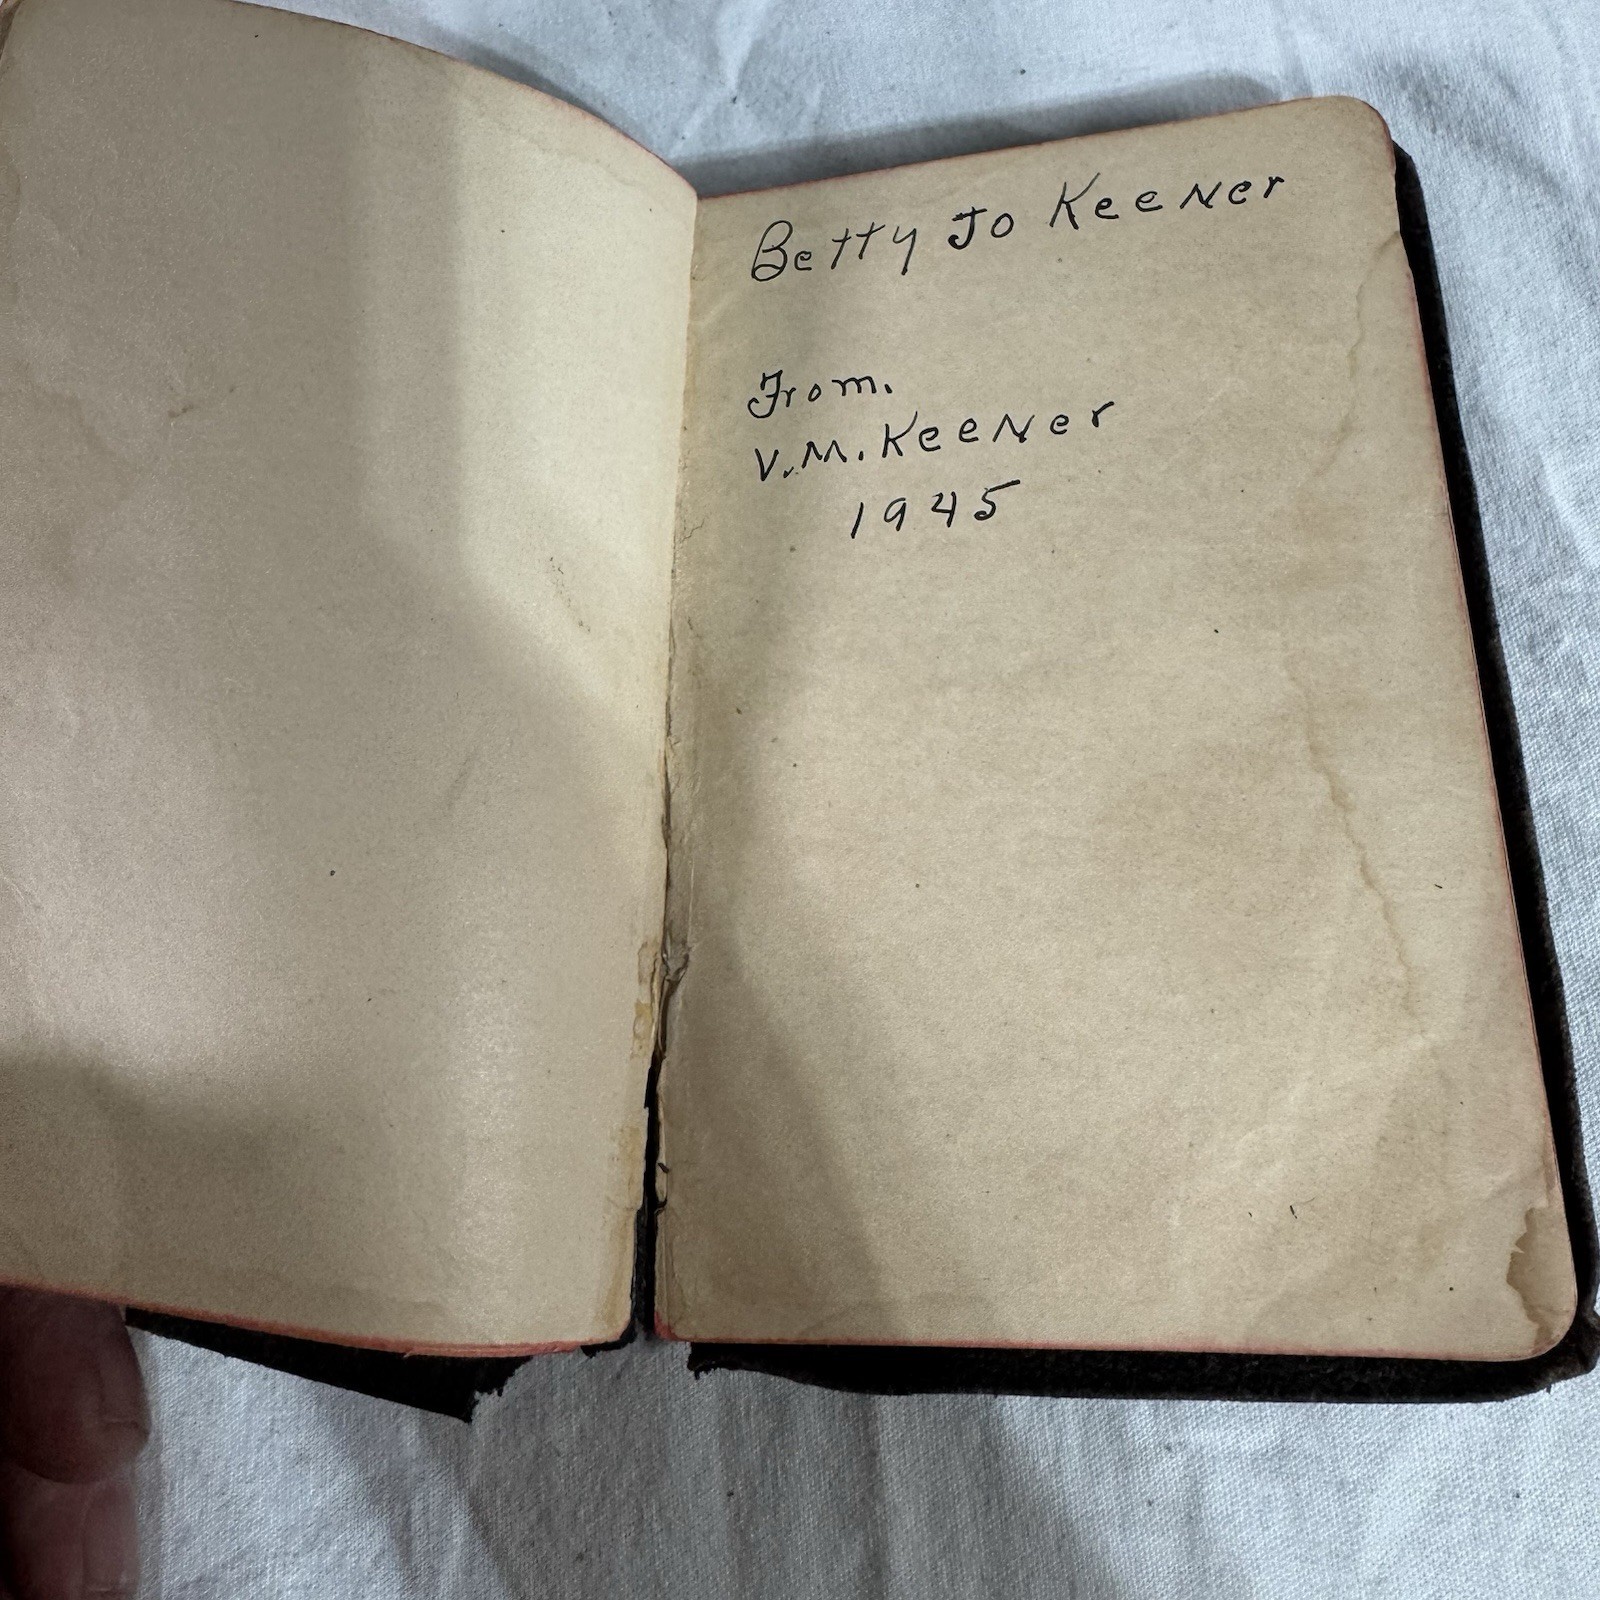 Betty Jo KeeNer
From.
V.M. KeeNer
1945